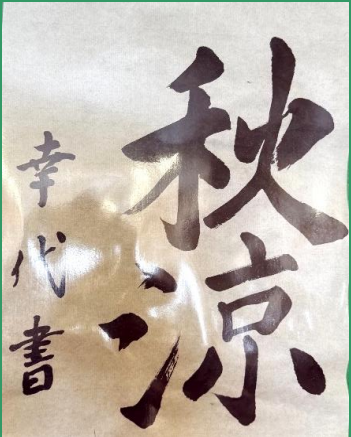 秋涼
幸代書